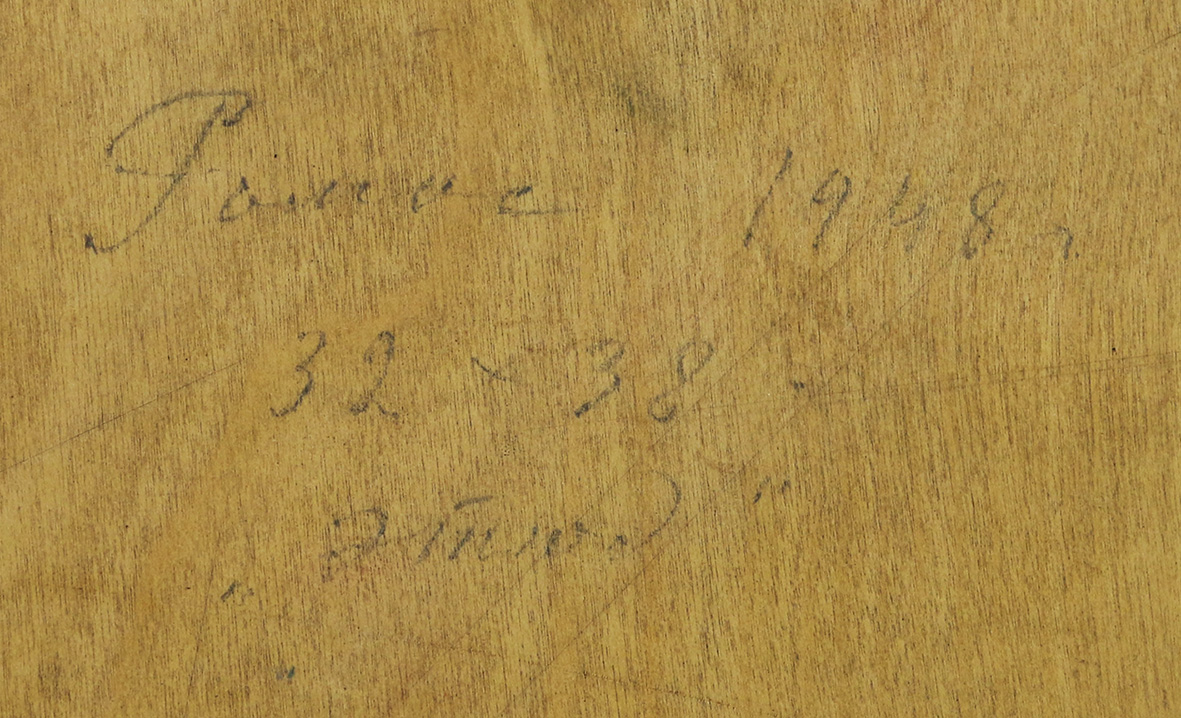 Ромас 1948 г.
32 x 38
„этюд"